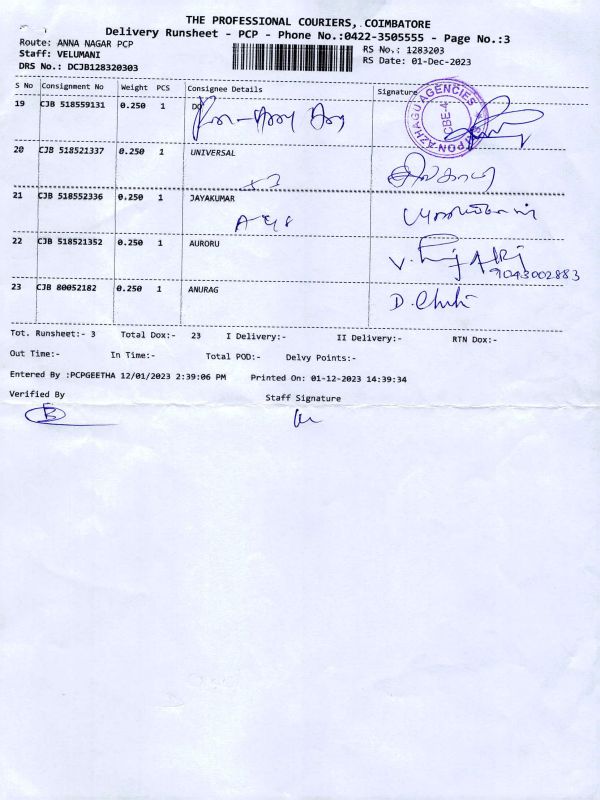 THE PROFESSIONAL COURIERS, COIMBATORE
Delivery Runsheet - PCP - Phone No.:0422-3505555 - Page No.:3
Route: ANNA NAGAR PCP RS No.: 1283203
Staff: VELUMANI RS Date: 01-Dec-2023
DRS No.: DCJB128320303
S No Consignment No Weight PCS Consignee Details Signature
19 CJB 518559131 0.250 1 DO
PON AZHAGU AGENCIES CBE-4
20 CJB 518521337 0.250 1 UNIVERSAL
21 CJB 518552336 0.250 1 JAYAKUMAR
22 CJB 518521352 0.250 1 AURORU
9043002883
23 CJB 80052182 0.250 1 ANURAG
Tot. Runsheet:- 3 Total Dox:- 23 I Delivery:- II Delivery:- RTN Dox:-
Out Time:- In Time:- Total POD:- Delvy Points:-
Entered By :PCPGEETHA 12/01/2023 2:39:06 PM Printed On: 01-12-2023 14:39:34
Verified By Staff Signature